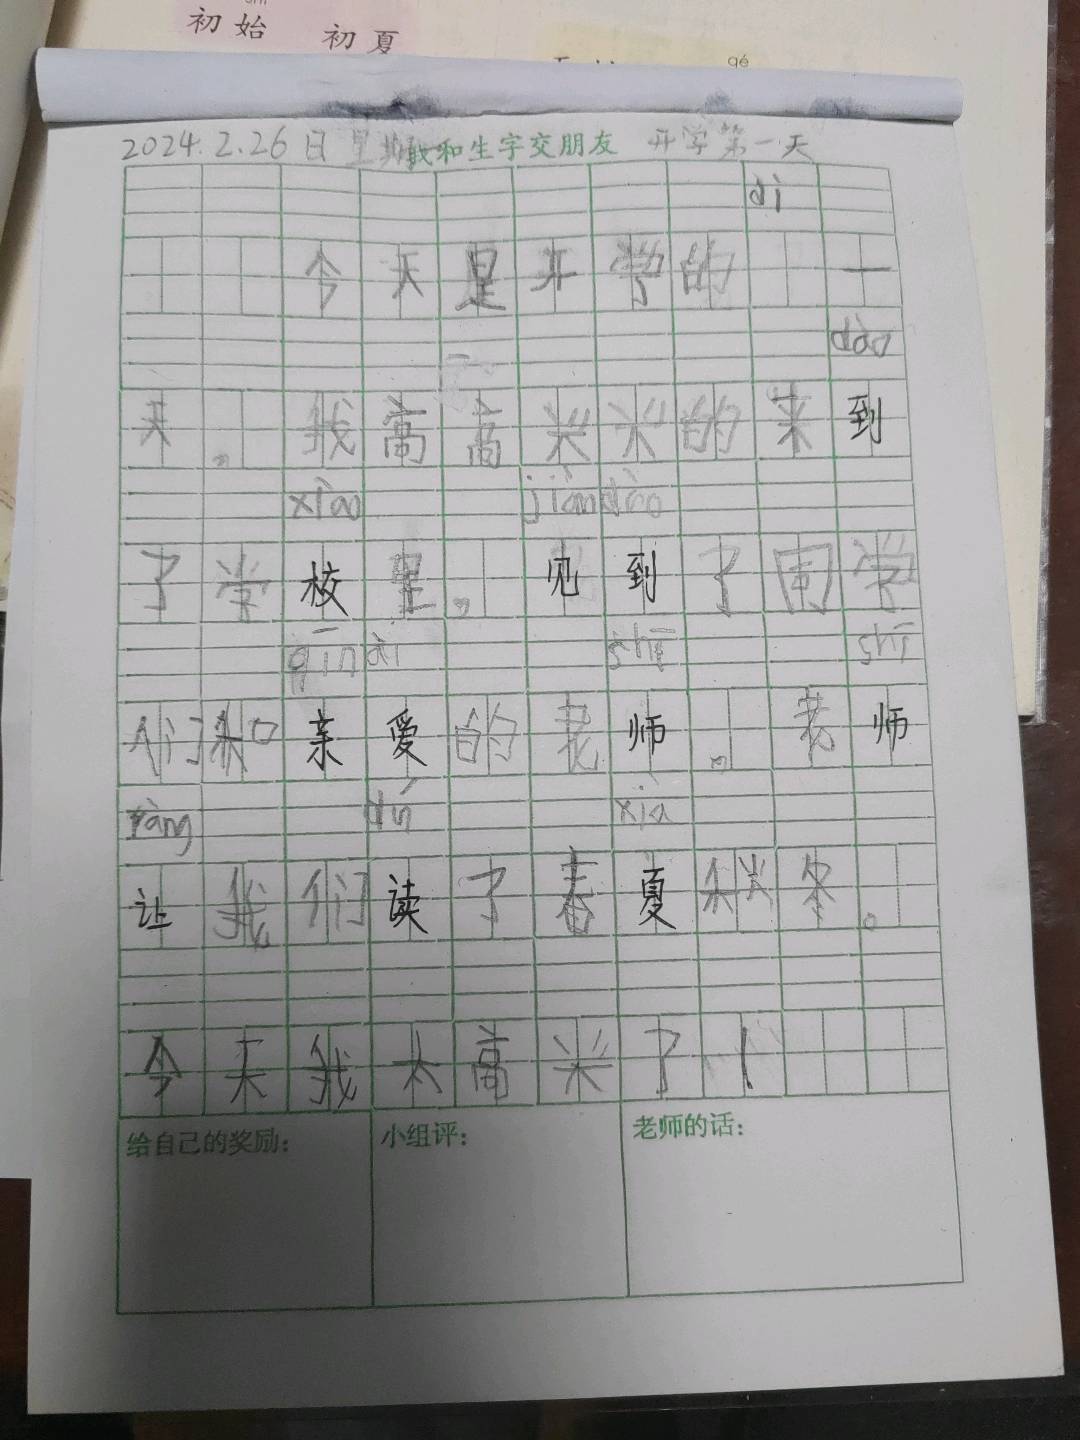 shǐ
初始 初夏
qé
2024.2.26日 星期 我和生字交朋友 开学第一天
dì
今天是开学的 一
dào
天。我高高兴兴的来到
xiào jiàn dào
了学校里。见到了同学
qīn ài shī shī
们和亲爱的老师。老师
ràng dú xià
让我们读了春夏秋冬。
今天我太高兴了！
给自己的奖励： 小组评： 老师的话：